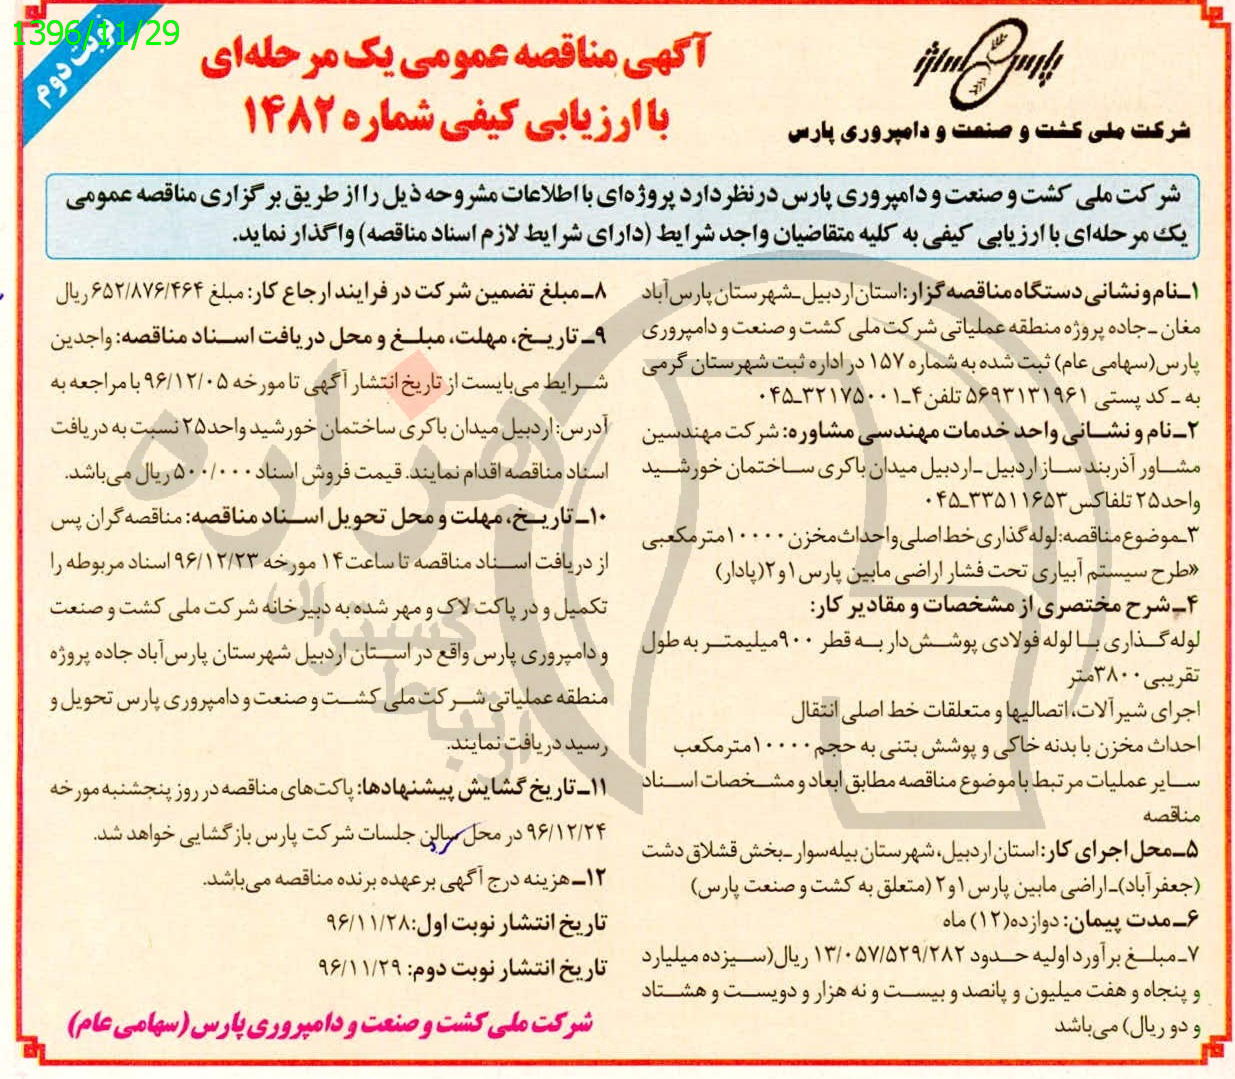 1396/11/29
نوبت دوم
پارس
شرکت ملی کشت و صنعت و دامپروری پارس
آگهی مناقصه عمومی یک مرحله‌ای
با ارزیابی کیفی شماره ۱۴۸۲
شرکت ملی کشت و صنعت و دامپروری پارس در نظر دارد پروژه‌ای با اطلاعات مشروحه ذیل را از طریق برگزاری مناقصه عمومی
یک مرحله‌ای با ارزیابی کیفی به کلیه متقاضیان واجد شرایط (دارای شرایط لازم اسناد مناقصه) واگذار نماید.
۱ـ نام و نشانی دستگاه مناقصه گزار: استان اردبیل ـ شهرستان پارس آباد
مغان ـ جاده پروژه منطقه عملیاتی شرکت ملی کشت و صنعت و دامپروری
پارس (سهامی عام) ثبت شده به شماره ۱۵۷ در اداره ثبت شهرستان گرمی
به ـ کد پستی ۵۶۹۳۱۳۱۹۶۱ تلفن ۴ـ۳۲۱۷۵۰۰۱ـ۰۴۵
۲ـ نام و نشـانی واحد خدمات مهندسی مشاوره: شرکت مهندسین
مشـاور آذربند سـاز اردبیل ـ اردبیل میدان باکری سـاختمان خورشـید
واحد ۲۵ تلفاکس ۳۳۵۱۱۶۵۳ـ۰۴۵
۳ـ موضوع مناقصه: لوله گذاری خط اصلی و احداث مخزن ۱۰۰۰۰ متر مکعبی
«طرح سیستم آبیاری تحت فشار اراضی مابین پارس ۱ و ۲ (پادار)
۴ـ شرح مختصری از مشخصات و مقادیر کار:
لوله گـذاری بـا لوله فولادی پوشـش‌دار بـه قطر ۹۰۰ میلیمتـر به طول
تقریبی ۳۸۰۰ متر
اجرای شیرآلات، اتصالیها و متعلقات خط اصلی انتقال
احداث مخزن با بدنه خاکی و پوشش بتنی به حجم ۱۰۰۰۰ متر مکعب
سـایر عملیات مرتبط با موضوع مناقصه مطابق ابعاد و مشـخصات اسـناد
مناقصه
۵ـ محل اجرای کار: استان اردبیل، شهرستان بیله سوار ـ بخش قشلاق دشت
(جعفرآباد)ـ اراضی مابین پارس ۱ و ۲ (متعلق به کشت و صنعت پارس)
۶ـ مدت پیمان: دوازده (۱۲) ماه
۷ـ مبلـغ برآورد اولیه حـدود ۱۳/۰۵۷/۵۲۹/۲۸۲ ریال (سـیزده میلیارد
و پنجاه و هفت میلیون و پانصد و بیسـت و نه هزار و دویسـت و هشـتاد
و دو ریال) می‌باشد
۸ـ مبلغ تضمین شرکت در فرایند ارجاع کار: مبلغ ۶۵۲/۸۷۶/۴۶۴ ریال
۹ـ تاریـخ، مهلت، مبلـغ و محل دریافت اسـناد مناقصه: واجدین
شـرایط می‌بایست از تاریخ انتشار آگهی تا مورخه ۹۶/۱۲/۰۵ با مراجعه به
آدرس: اردبیل میدان باکری ساختمان خورشید واحد ۲۵ نسبت به دریافت
اسناد مناقصه اقدام نمایند. قیمت فروش اسناد ۵۰۰/۰۰۰ ریال می‌باشد.
۱۰ـ تاریـخ، مهلت و محل تحویل اسـناد مناقصه: مناقصه گران پس
از دریافت اسـناد مناقصه تا ساعت ۱۴ مورخه ۹۶/۱۲/۲۳ اسناد مربوطه را
تکمیل و در پاکت لاک و مهر شده به دبیرخانه شرکت ملی کشت و صنعت
و دامپروری پارس واقع در اسـتان اردبیل شهرستان پارس آباد جاده پروژه
منطقه عملیاتی شـرکت ملی کشـت و صنعت و دامپروری پارس تحویل و
رسید دریافت نمایند.
۱۱ـ تاریخ گشایش پیشنهادها: پاکت‌های مناقصه در روز پنجشنبه مورخه
۹۶/۱۲/۲۴ در محل سالن جلسات شرکت پارس بازگشایی خواهد شد.
۱۲ـ هزینه درج آگهی بر عهده برنده مناقصه می‌باشد.
تاریخ انتشار نوبت اول: ۹۶/۱۱/۲۸
تاریخ انتشار نوبت دوم: ۹۶/۱۱/۲۹
شرکت ملی کشت و صنعت و دامپروری پارس (سهامی عام)
هزاره
ارتباط گستران